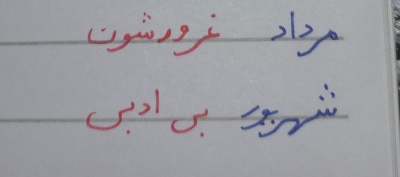 مرداد غرورشون
شهریور بی ادبی